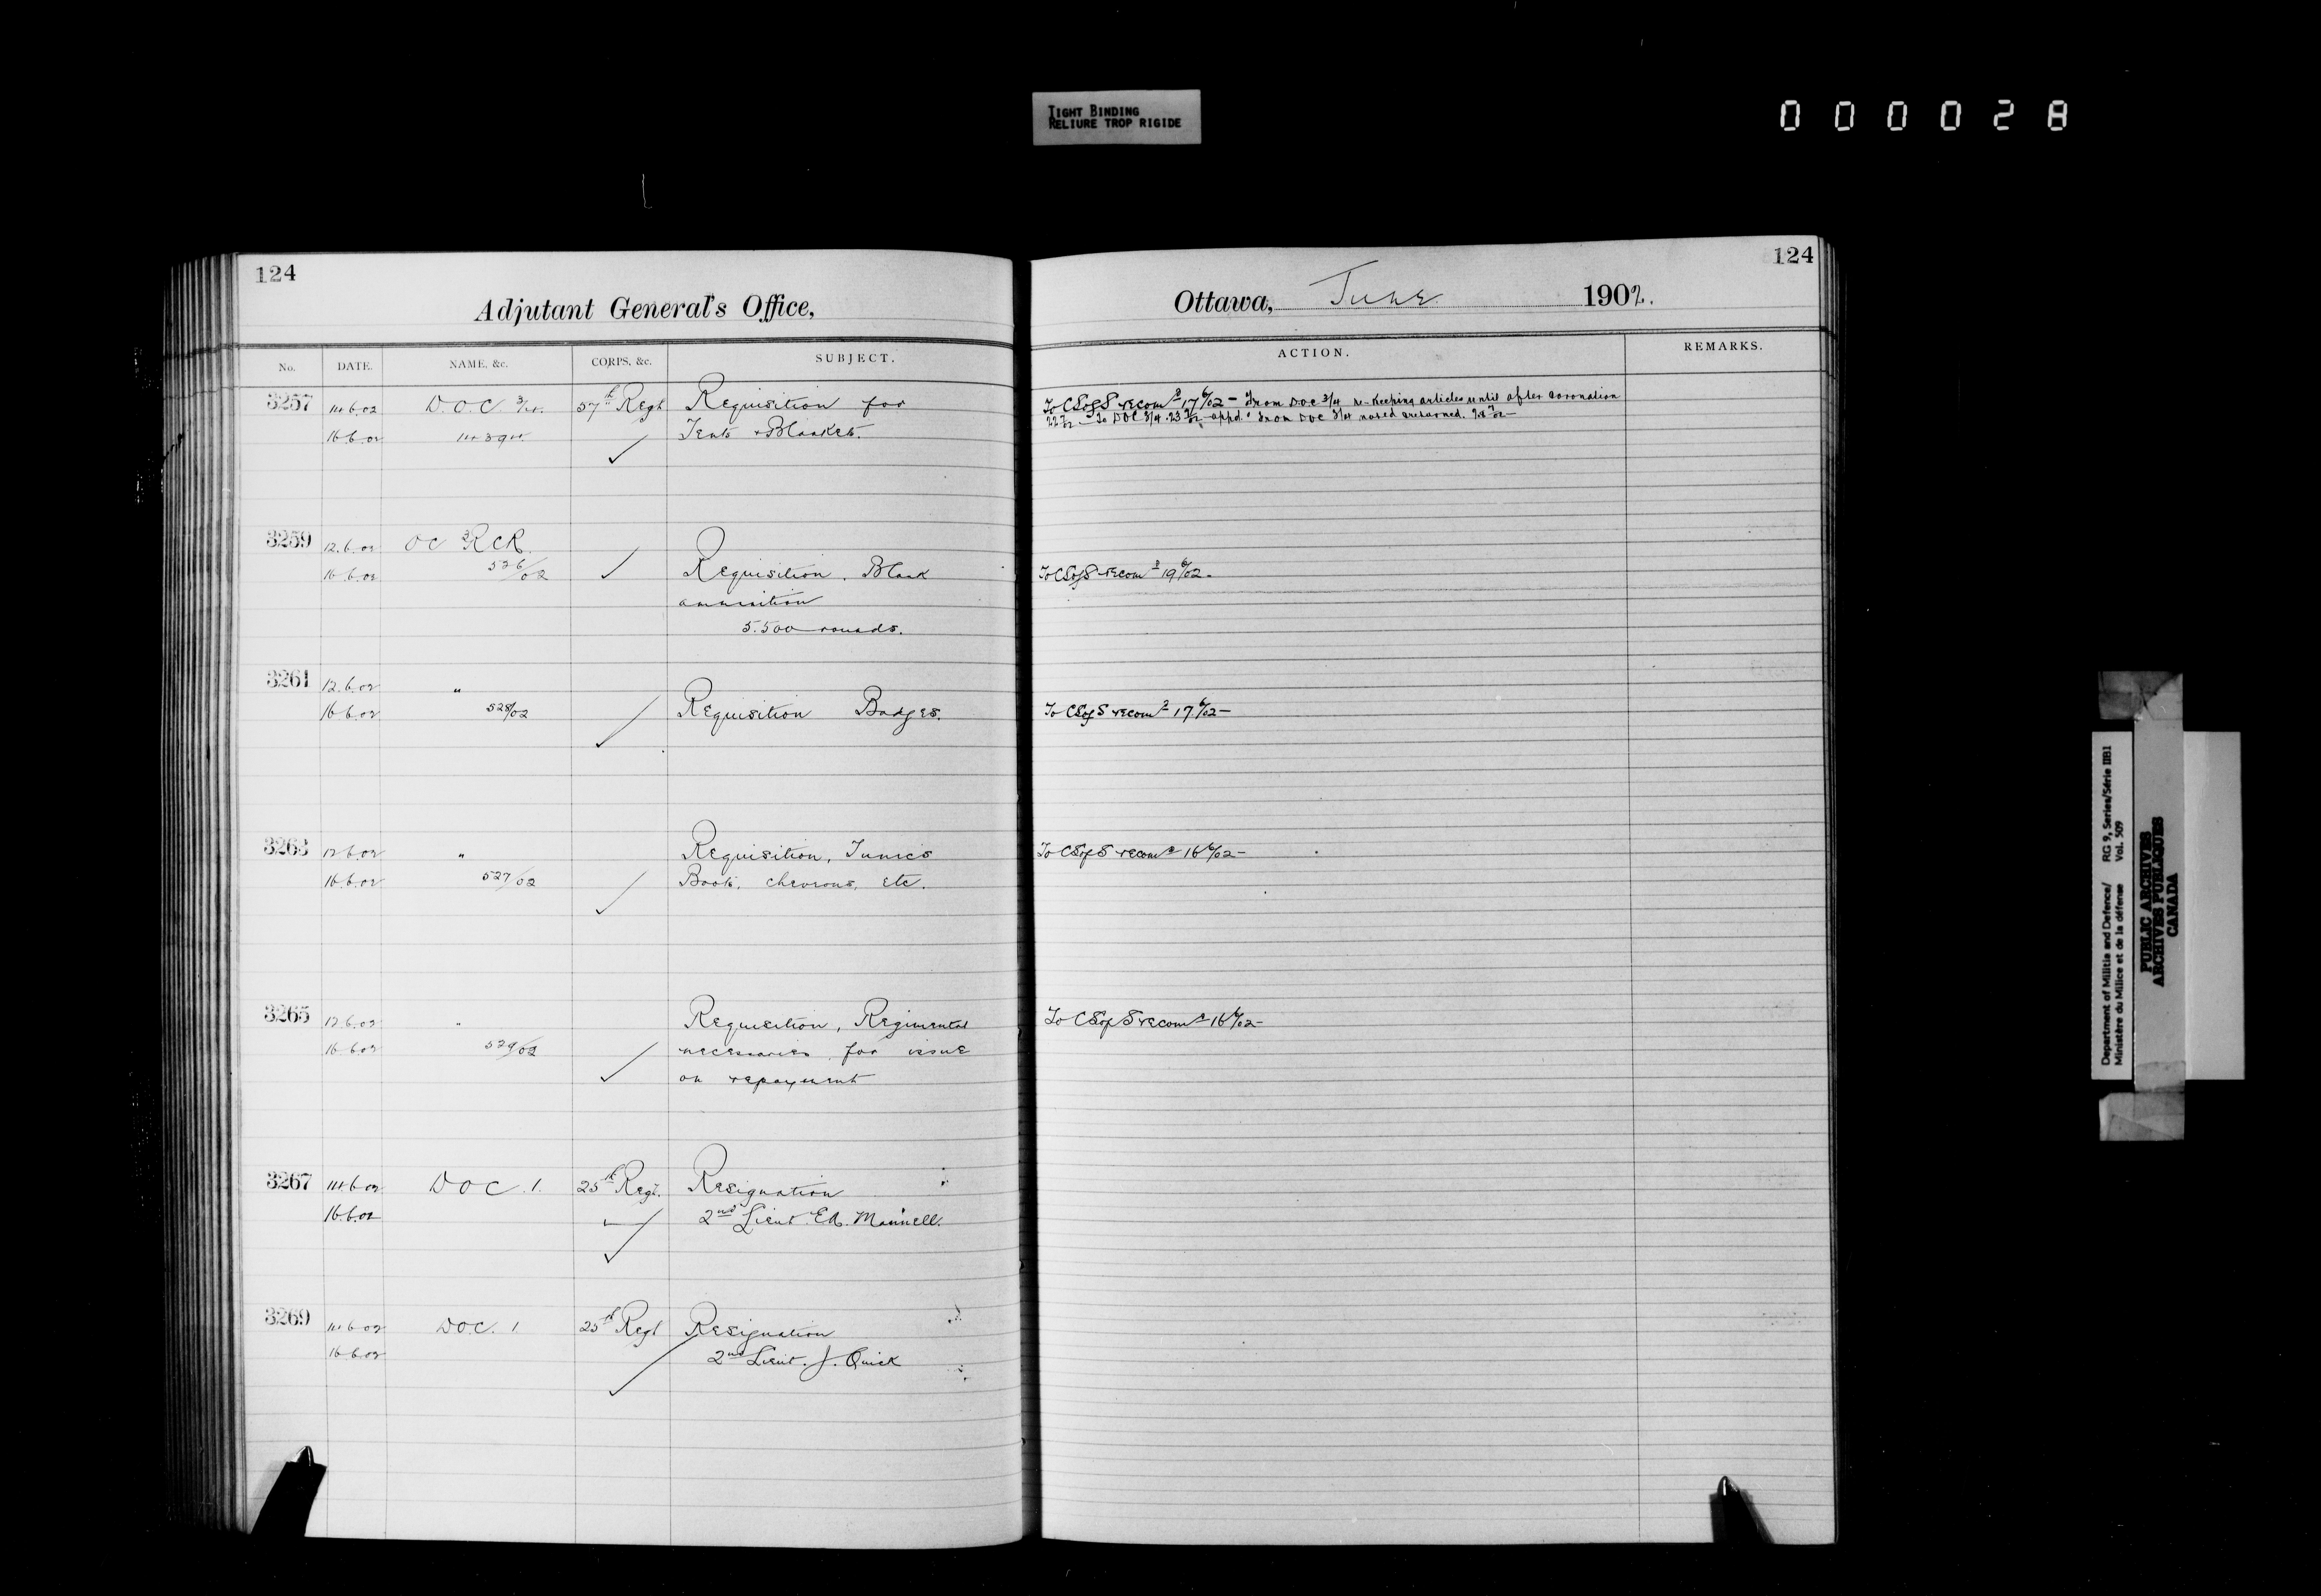 TIGHT BINDING
RELIURE TROP RIGIDE
000028
124
Adjutant General's Office,
No. DATE. NAME, &c. CORPS, &c. SUBJECT.
3257 14.6.02 D.O.C. 3/4. 57th Regt Requisition for
16.6.02 Tents & Blankets.
3259 12.6.02 OC RCR
16.6.02 526/02 Requisition. Blank
ammunition
5.500 rounds.
3261 12.6.02 "
16.6.02 528/02 Requisition Badges.
3263 12.6.02 " Requisition, Tunics
16.6.02 527/02 Boots, chevrons, etc.
3265 12.6.02 " Requisition, Regimental
16.6.02 529/02 necessaries for issue
on repayment
3267 14.6.02 DOC. 1. 25th Regt. Resignation
16.6.02 2nd Lieut. E.A. Maunell.
3269 14.6.02 DOC. 1 25th Regt Resignation
16.6.02 2nd Lieut. J. Quick
124
Ottawa, June 1902.
ACTION. REMARKS.
To CSofS recomd 17 6/02 - From DOC 3/4 re-keeping articles until after coronation
To DOC 3/4 appd. From DOC 3/4 noted & returned.
To CSofS recomd 19 6/02.
To CSofS recomd 17 6/02-
To CSofS recomd 16 6/02-
To CSofS recomd 16 6/02-
Department of Militia and Defence/ RG 9, Series/Série IIB1
Ministère du Milice et de la défense Vol. 509
PUBLIC ARCHIVES
ARCHIVES PUBLIQUES
CANADA